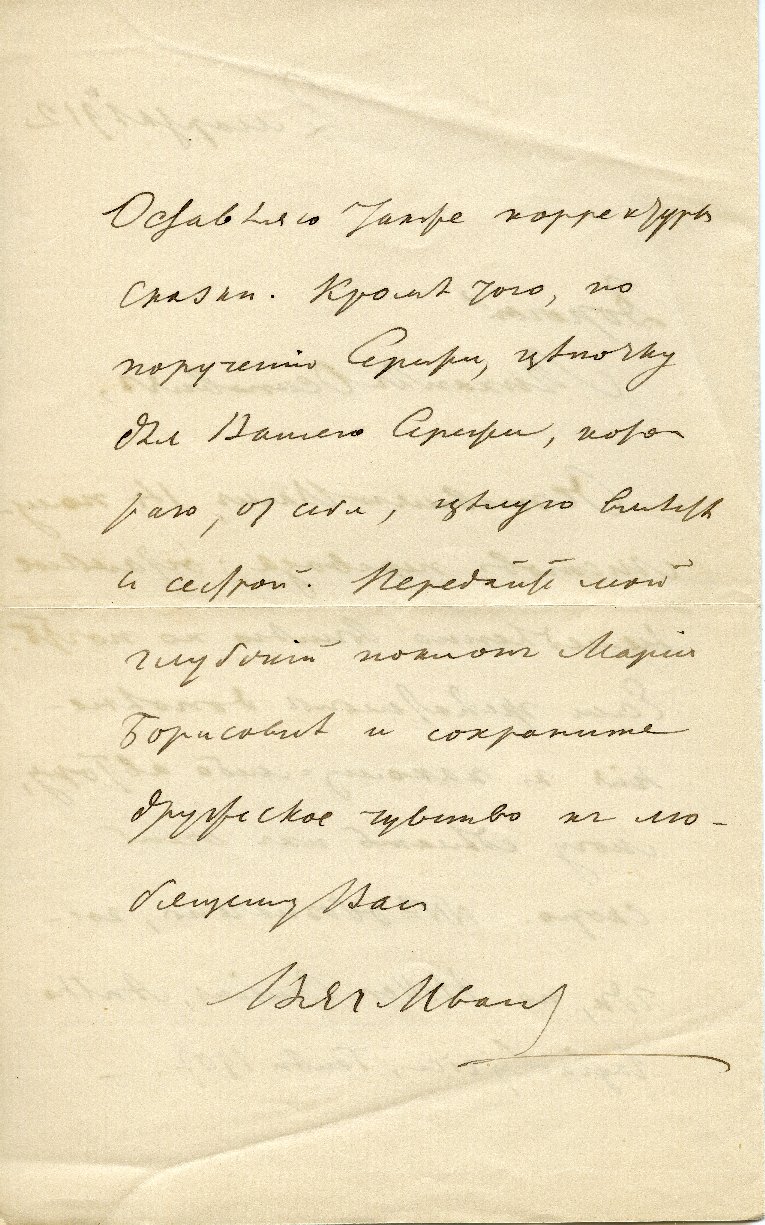 Оставляю также корректуры
сказки. Кромѣ того, по
порученію Сережи, цѣпочку
для Вашего Сережи, кото-
раго, от себя, цѣлую вмѣстѣ
и сестрой. Передайте мой
глубокій поклонъ Маріи
Борисовнѣ и сохраните
дружеское чувство къ лю-
бящему Васъ
Вяч Иванову